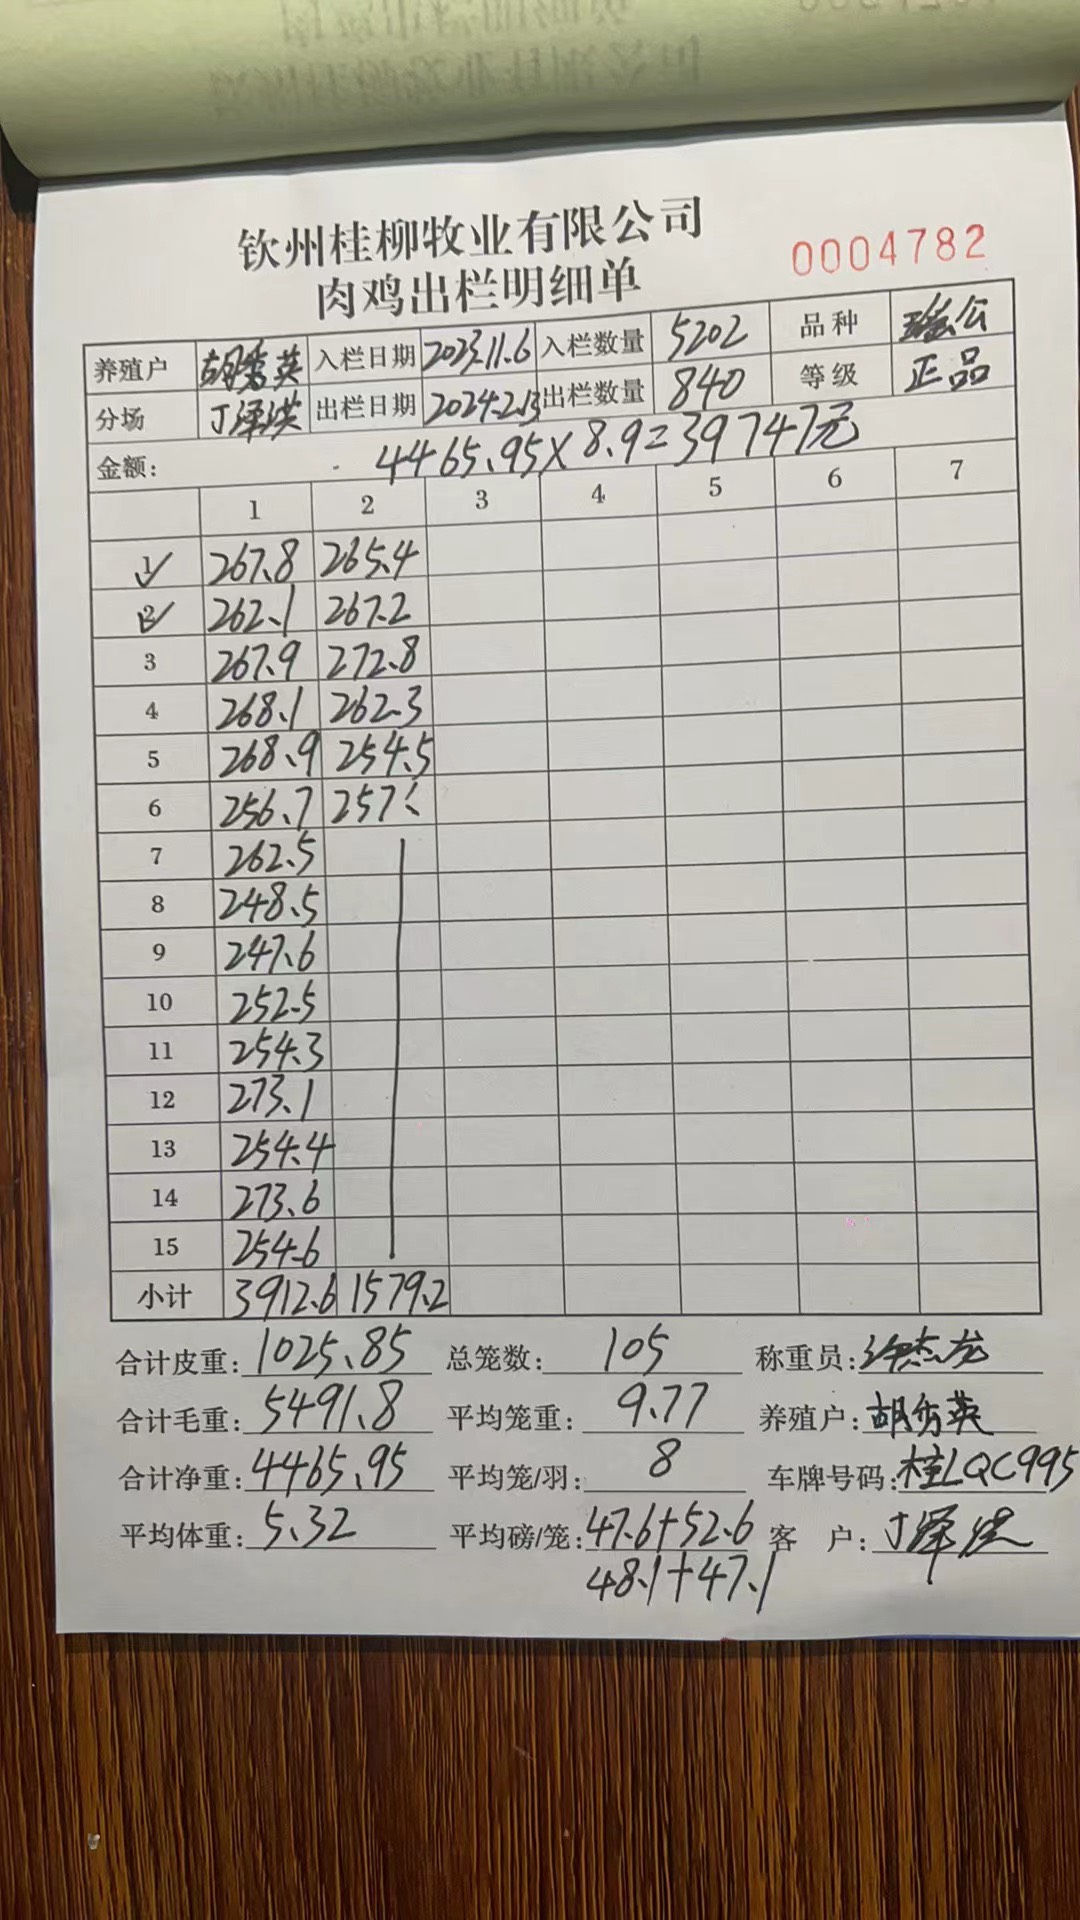 钦州桂柳牧业有限公司
肉鸡出栏明细单
0004782
养殖户 胡秀英 入栏日期 2023.11.6 入栏数量 5202 品种 瑶公
分场 丁泽洪 出栏日期 2024.2.13 出栏数量 840 等级 正品
金额: 4465.95×8.9=39747元
1 2 3 4 5 6 7
1 267.8 265.4
2 262.1 267.2
3 267.9 272.8
4 268.1 262.3
5 268.9 254.5
6 256.7 257
7 262.5
8 248.5
9 247.6
10 252.5
11 254.3
12 273.1
13 254.4
14 273.6
15 254.6
小计 3912.6 1579.2
合计皮重: 1025.85 总笼数: 105 称重员: 杰龙
合计毛重: 5491.8 平均笼重: 9.77 养殖户: 胡秀英
合计净重: 4465.95 平均笼/羽: 8 车牌号码: 桂LQC995
平均体重: 5.32 平均磅/笼: 47.6+52.6 客户: 丁泽洪
48.1+47.1